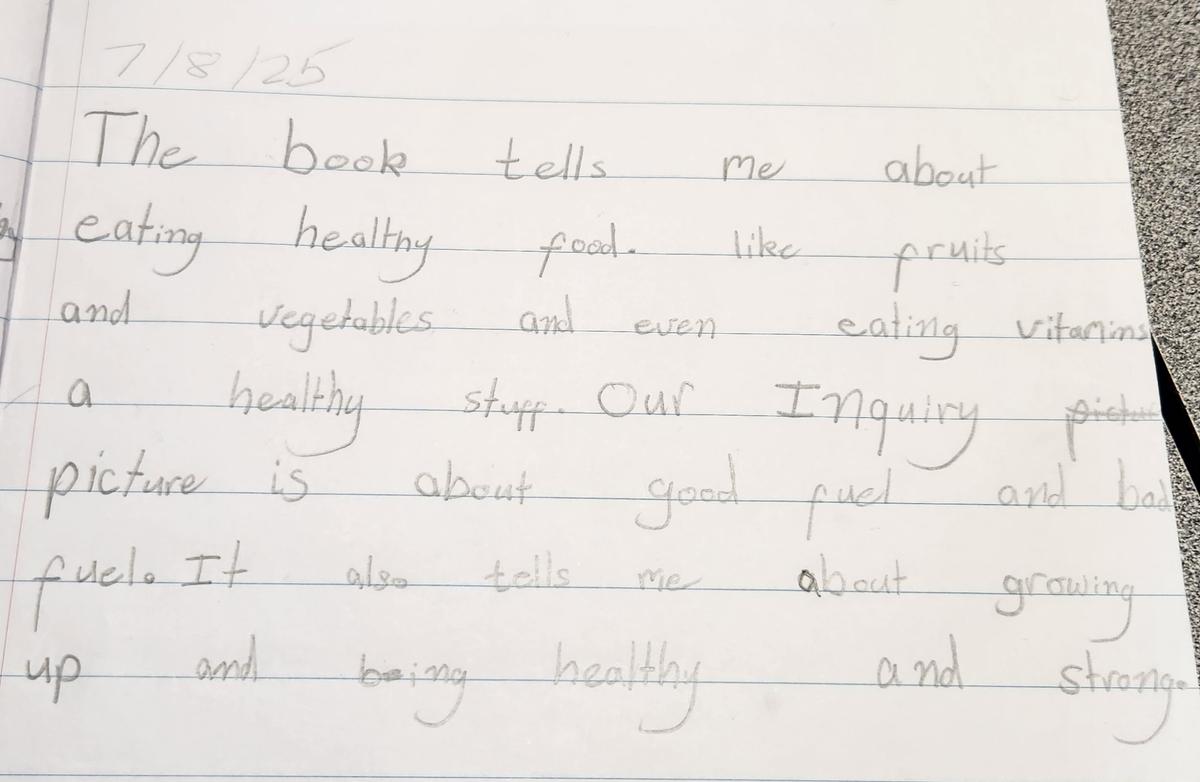 7/8/25
The book tells me about
eating healthy food. like fruits
and vegetables and even eating vitamins
a healthy stuff. Our Inquiry
picture is about good fuel and bad
fuel. It also tells me about growing
up and being healthy and strong.